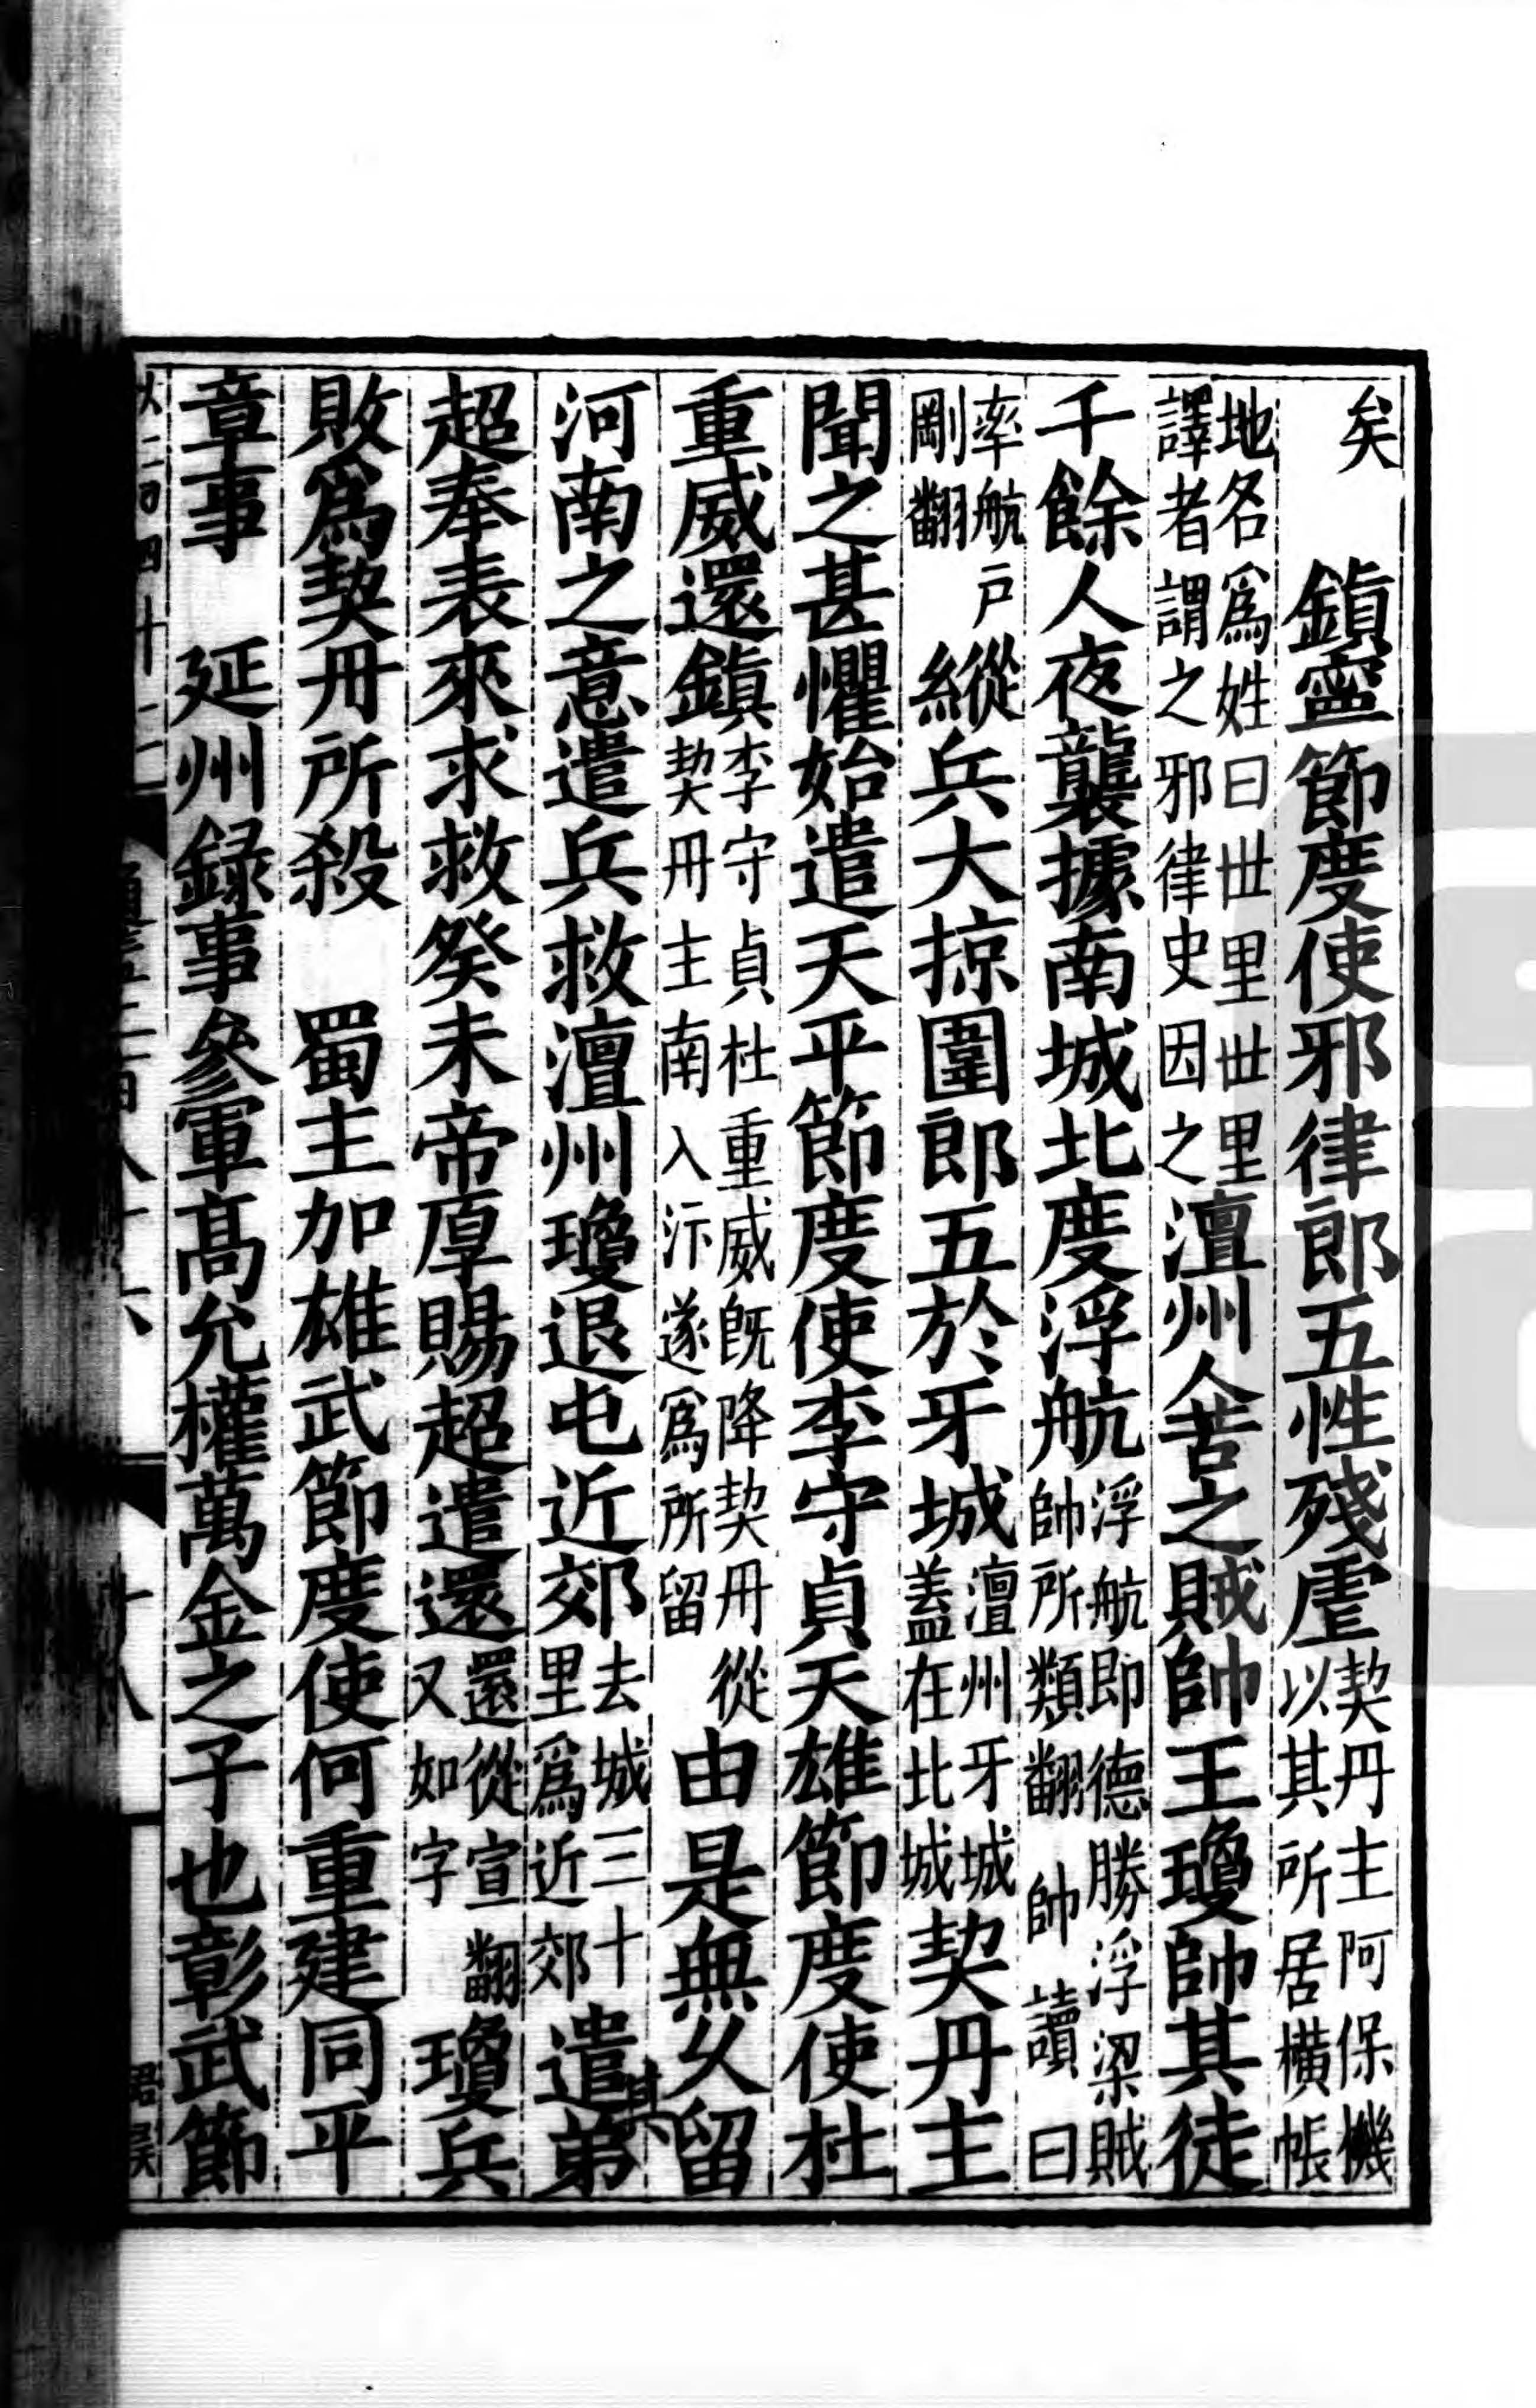 矣　鎮寧節度使邪律郎五性殘虐契丹主阿保機以其所居橫帳
地名爲姓曰世里世里譯者謂之邪律史因之澶州人苦之賊帥王瓊帥其徒
千餘人夜襲據南城北度浮航浮航即德勝浮梁賊帥所類翻帥讀曰
率航戶剛翻縱兵大掠圍郎五於牙城澶州牙城蓋在北城契丹主
聞之甚懼始遣天平節度使李守貞天雄節度使杜
重威還鎮李守貞杜重威旣降契丹從契丹主南入汴遂爲所留由是無久留
河南之意遣兵救澶州瓊退屯近郊去城三十里爲近郊遣其弟
超奉表來求救癸未帝厚賜超遣還還從宣翻又如字瓊兵
敗爲契丹所殺　蜀主加雄武節度使何重建同平
章事　延州録事參軍髙允權萬金之子也彰武節